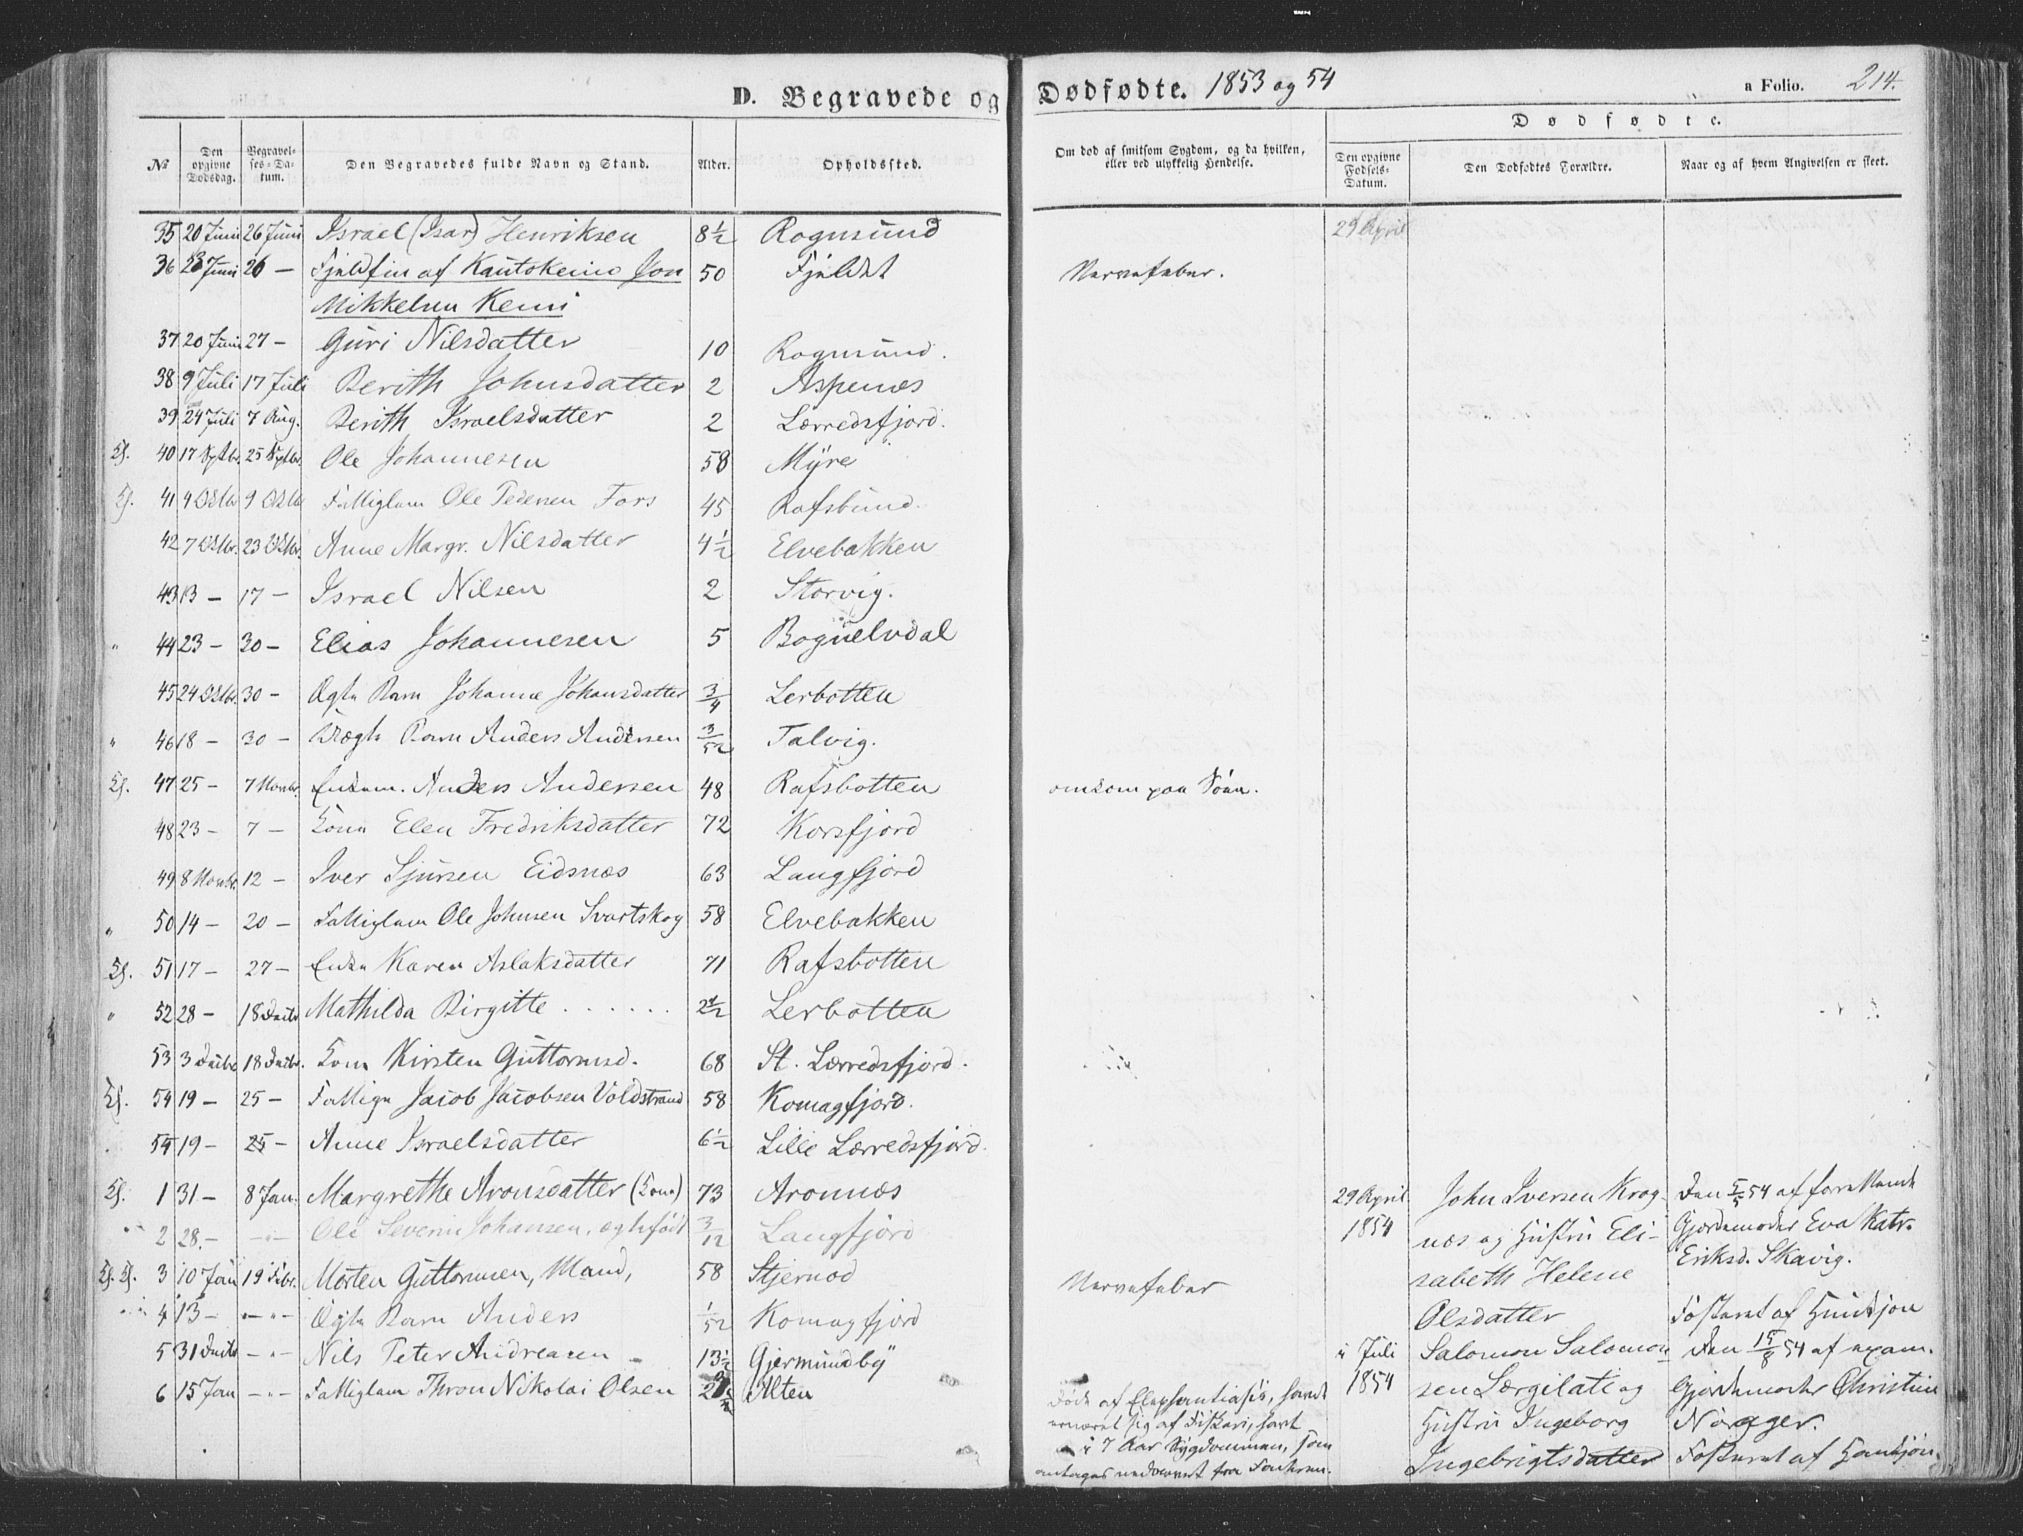 D. Begravede og Dødfødte. 1853 og 54
a Folio. 214.
Dødfødte.
No
Den opgivne Dødsdag.
Begravelses-Datum.
Den Begravedes fulde Navn og Stand.
Alder.
Opholdssted.
Om død af smitsom Sygdom, og da hvilken, eller ved ulykkelig Hendelse.
Den opgivne Fødsels-Datum.
Den Dødfødtes Forældre.
Naar og af hvem Angivelsen er skeet.
35 20 Juni 26 Juni Israel (Isar) Henriksen 8½ Rognsund 29 April
36 23 Juni 26 — Fjeldfin af Kautokeino Jon 50 Fjeldet Nervefeber.
Mikkelsen Kemi
37 20 Juni 27 — Guri Nilsdatter 10 Rognsund.
38 9 Juli 17 Juli Berith Johnsdatter 2 Aspenæs
39 24 Juli 7 Aug. Berith Israelsdatter 2 Lærredsfjord.
40 17 Septbr. 25 Septbr. Ole Johannesen 58 Myre
41 4 Oktbr 9 Oktbr Fattiglem Ole Pedersen Fors 45 Rafsbund.
42 7 Oktbr. 23 Oktbr. Anne Margr. Nilsdatter 4½ Elvebakken
43 13 — 17 — Israel Nilsen 2 Storvig.
44 23 — 30 — Elias Johannesen 5 Bognelvdal
45 24 Oktbr. 30 — Ægte Barn Johanne Johansdatter 3/4 Lerbotten
46 18 — 30 — Uægte Barn Anders Andersen 3/52 Talvig.
47 25 — 7 Novbr. Enkem. Anders Andersen 48 Rafsbotten omkom paa Søen.
48 23 — 7 — Kone Elen Fredriksdatter 72 Korsfjord
49 8 Novbr. 12 — Iver Sjursen Eidsnæs 63 Langfjord
50 14 — 20 — Fattiglem Ole Johnsen Svartskog 58 Elvebakken
51 17 — 27 — Enke Karen Aslaksdatter 71 Rafsbotten
52 28 — 18 Decbr Mathilda Birgitte . . . . . . 2½ Lerbotten
53 3 Decbr 18 Decbr. Kone Kirsten Guttormsd. 68 St. Lærredsfjord.
54 19 — 25 — Fattige Jacob Jacobsen Voldstrand 58 Komagfjord.
54 19 — 25 — Anne Israelsdatter 6½ Lille Lærredsfjord.
1 31 — 8 Jan. Margrethe Aronsdatter (Kone) 73 Aronnæs
2 28. — Ole Severin Johansen, ægtefødt 3/12 Langfjord
3 10 Jan 19 Febr. Morten Guttormsen, Mand, 58 Stjernød Nervefeber
4 13 — Ægte Barn Anders 1/52 Komagfjord
5 31 Decbr Nils Peter Andreasen 13½ Gjermundby
6 15 Jan Fattiglem Thron Nikolai Olsen Alten
Døde af Elephantiasis, havde
ernæret sig af Fiskeri, havt
i 7 Aar Sygdommen, som
antages nedarvet fra Forældrene.
29 April 1854
John Iversen Krog-
næs og Hustru Eli-
sabeth Helene
Olsdatter
Den 5/5 54 af
Gjordemoder Eva Katr.
Eriksd. Skavig.
Fosteret af Hunkjøn
i Juli 1854
Salomon Salomon-
sen Lærgilati og
Hustru Ingeborg
Ingebrigtsdatter
Den 15/8 54 af exam.
Gjordemoder Christine
Norager.
Fosteret af Hankjøn.